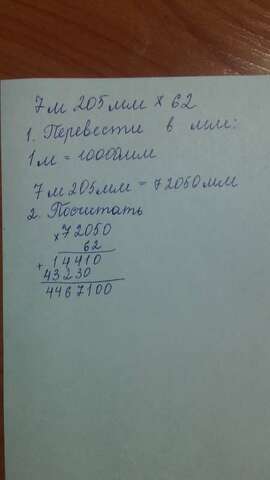 7м 205мм × 62
1. Перевести в мм:
1м = 10000мм
7м 205мм = 72050мм
2. Посчитать
×72050
62
+14410
43230
4467100